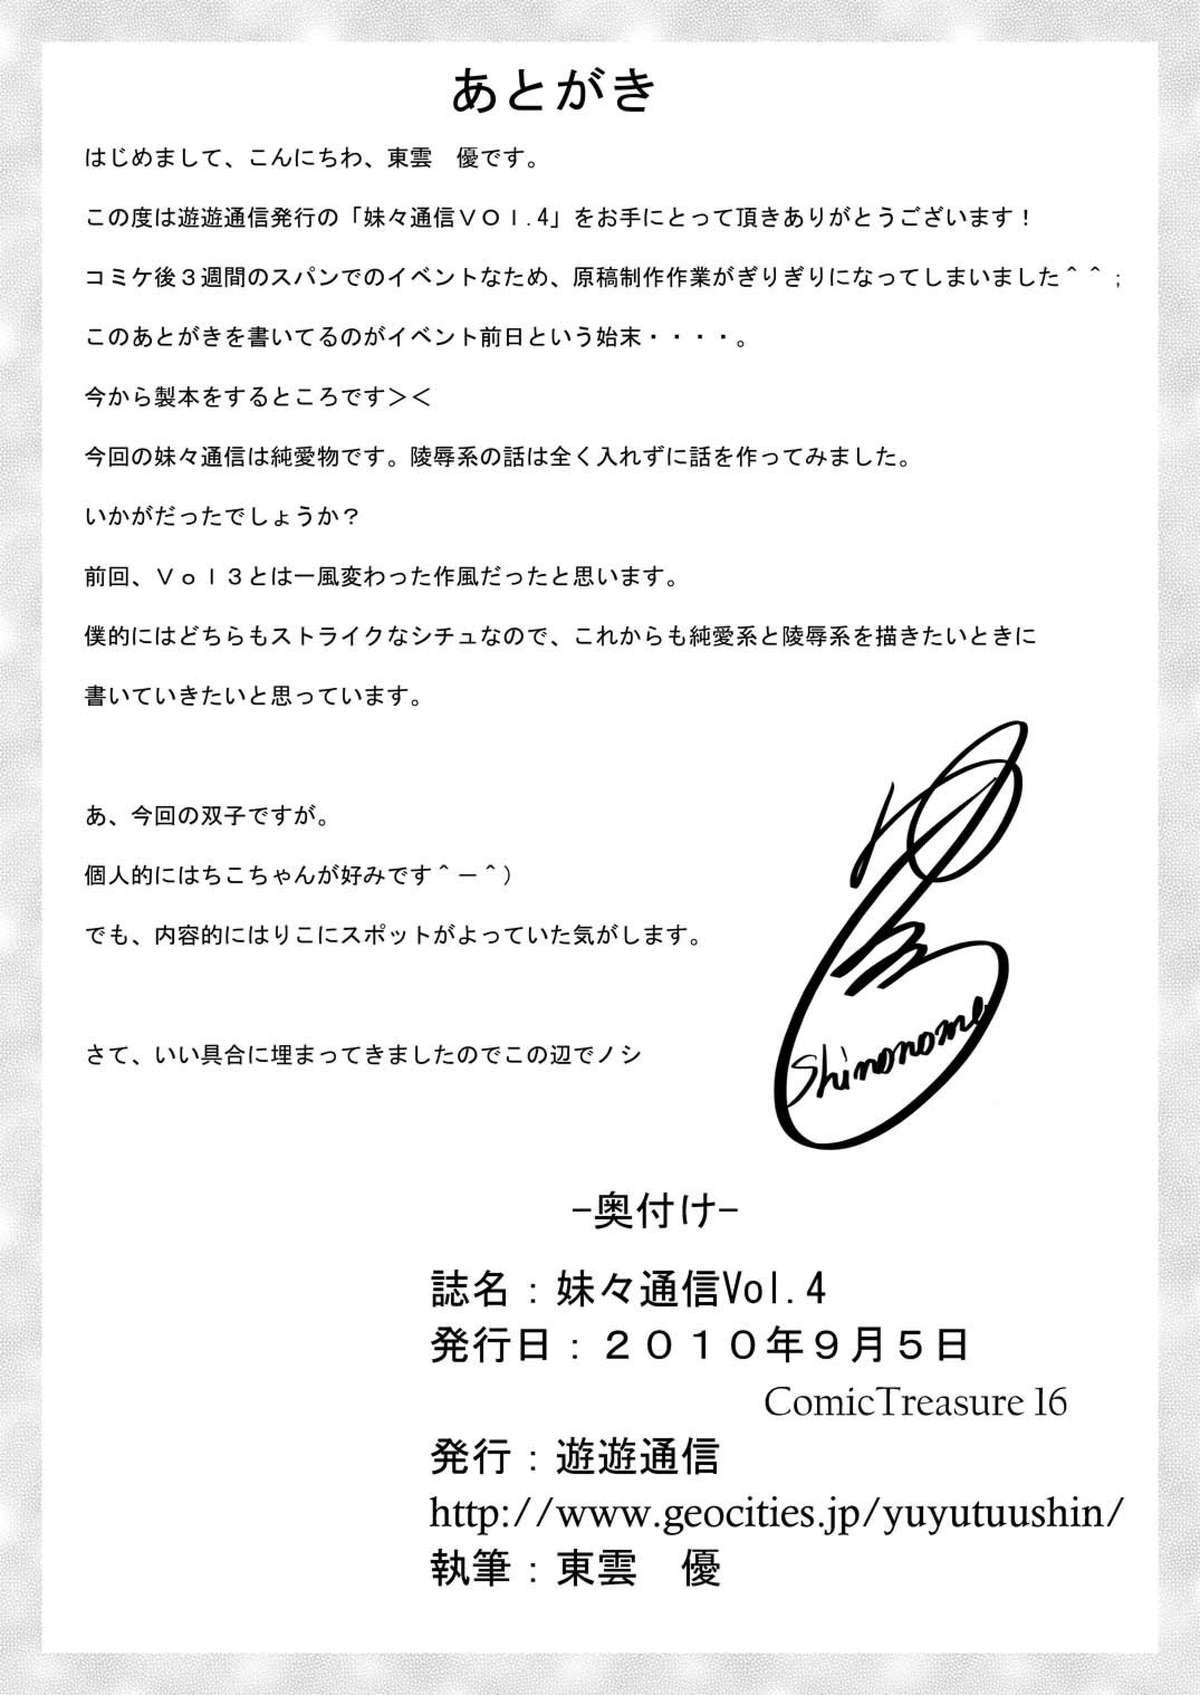 あとがき
はじめまして、こんにちわ、東雲　優です。
この度は遊遊通信発行の「妹々通信ＶＯｌ.4」をお手にとって頂きありがとうございます！
コミケ後３週間のスパンでのイベントなため、原稿制作作業がぎりぎりになってしまいました＾＾；
このあとがきを書いてるのがイベント前日という始末・・・・。
今から製本をするところです＞＜
今回の妹々通信は純愛物です。陵辱系の話は全く入れずに話を作ってみました。
いかがだったでしょうか？
前回、Ｖｏｌ３とは一風変わった作風だったと思います。
僕的にはどちらもストライクなシチュなので、これからも純愛系と陵辱系を描きたいときに
書いていきたいと思っています。
あ、今回の双子ですが。
個人的にはちこちゃんが好みです＾－＾）
でも、内容的にはりこにスポットがよっていた気がします。
さて、いい具合に埋まってきましたのでこの辺でノシ
Shinonome
-奥付け-
誌名：妹々通信Vol.4
発行日：２０１０年９月５日
ComicTreasure 16
発行：遊遊通信
http://www.geocities.jp/yuyutuushin/
執筆：東雲　優